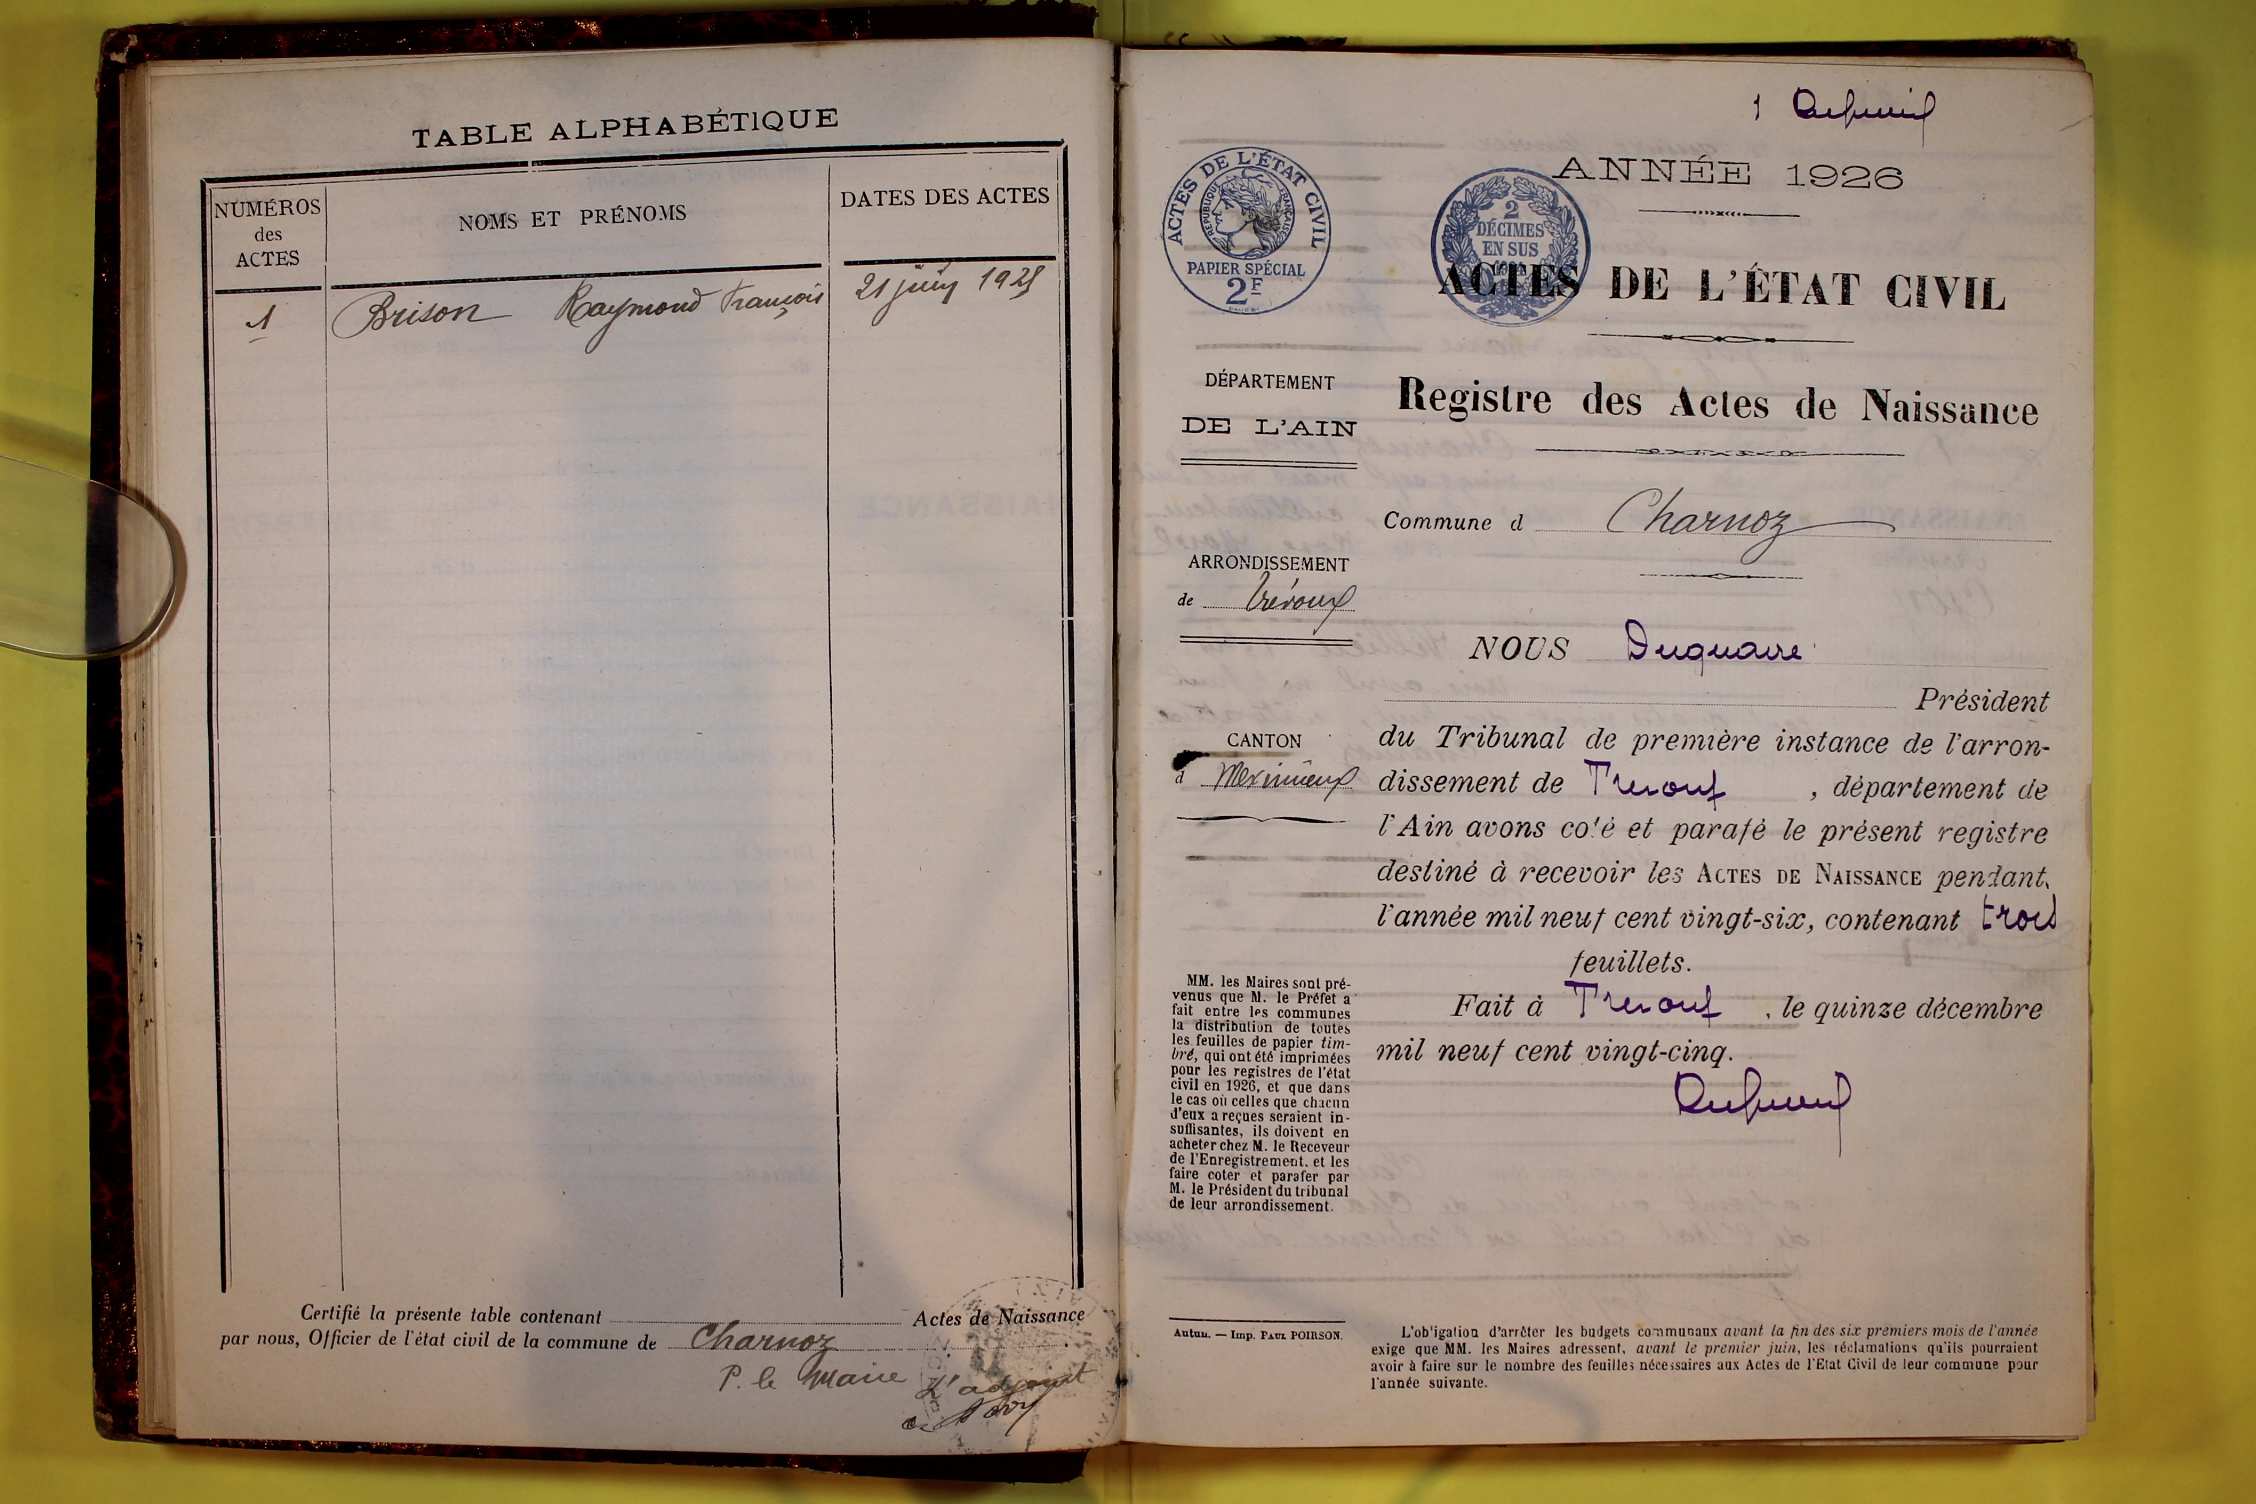 TABLE ALPHABÉTIQUE
NUMÉROS
des
ACTES
NOMS ET PRÉNOMS
DATES DES ACTES
1 Brison Raymond François 21 juin 1925
Certifié la présente table contenant Actes de Naissance
par nous, Officier de l'état civil de la commune de Charnoz
P. le Maire L'adjoint
1
ANNÉE 1926
ACTES DE L'ÉTAT CIVIL
RÉPUBLIQUE FRANÇAISE
PAPIER SPÉCIAL
2F
2
DÉCIMES
EN SUS
ACTES DE L'ÉTAT CIVIL
DÉPARTEMENT
DE L'AIN
Registre des Actes de Naissance
Commune d Charnoz
ARRONDISSEMENT
de Trévoux
CANTON
d Meximieux
NOUS Duquaire
Président
du Tribunal de première instance de l'arron-
dissement de Trevoux , département de
l'Ain avons coté et parafé le présent registre
destiné à recevoir les ACTES DE NAISSANCE pendant
l'année mil neuf cent vingt-six, contenant trois
feuillets.
Fait à Trevoux , le quinze décembre
mil neuf cent vingt-cinq.
MM. les Maires sont pré-
venus que M. le Préfet a
fait entre les communes
la distribution de toutes
les feuilles de papier tim-
bré, qui ont été imprimées
pour les registres de l'état
civil en 1926, et que dans
le cas où celles que chacun
d'eux a reçues seraient in-
suffisantes, ils doivent en
acheter chez M. le Receveur
de l'Enregistrement. et les
faire coter et parafer par
M. le Président du tribunal
de leur arrondissement.
Autun. — Imp. PAUL POIRSON.
L'obligation d'arrêter les budgets communaux avant la fin des six premiers mois de l'année
exige que MM. les Maires adressent, avant le premier juin, les réclamations qu'ils pourraient
avoir à faire sur le nombre des feuilles nécessaires aux Actes de l'Etat Civil de leur commune pour
l'année suivante.